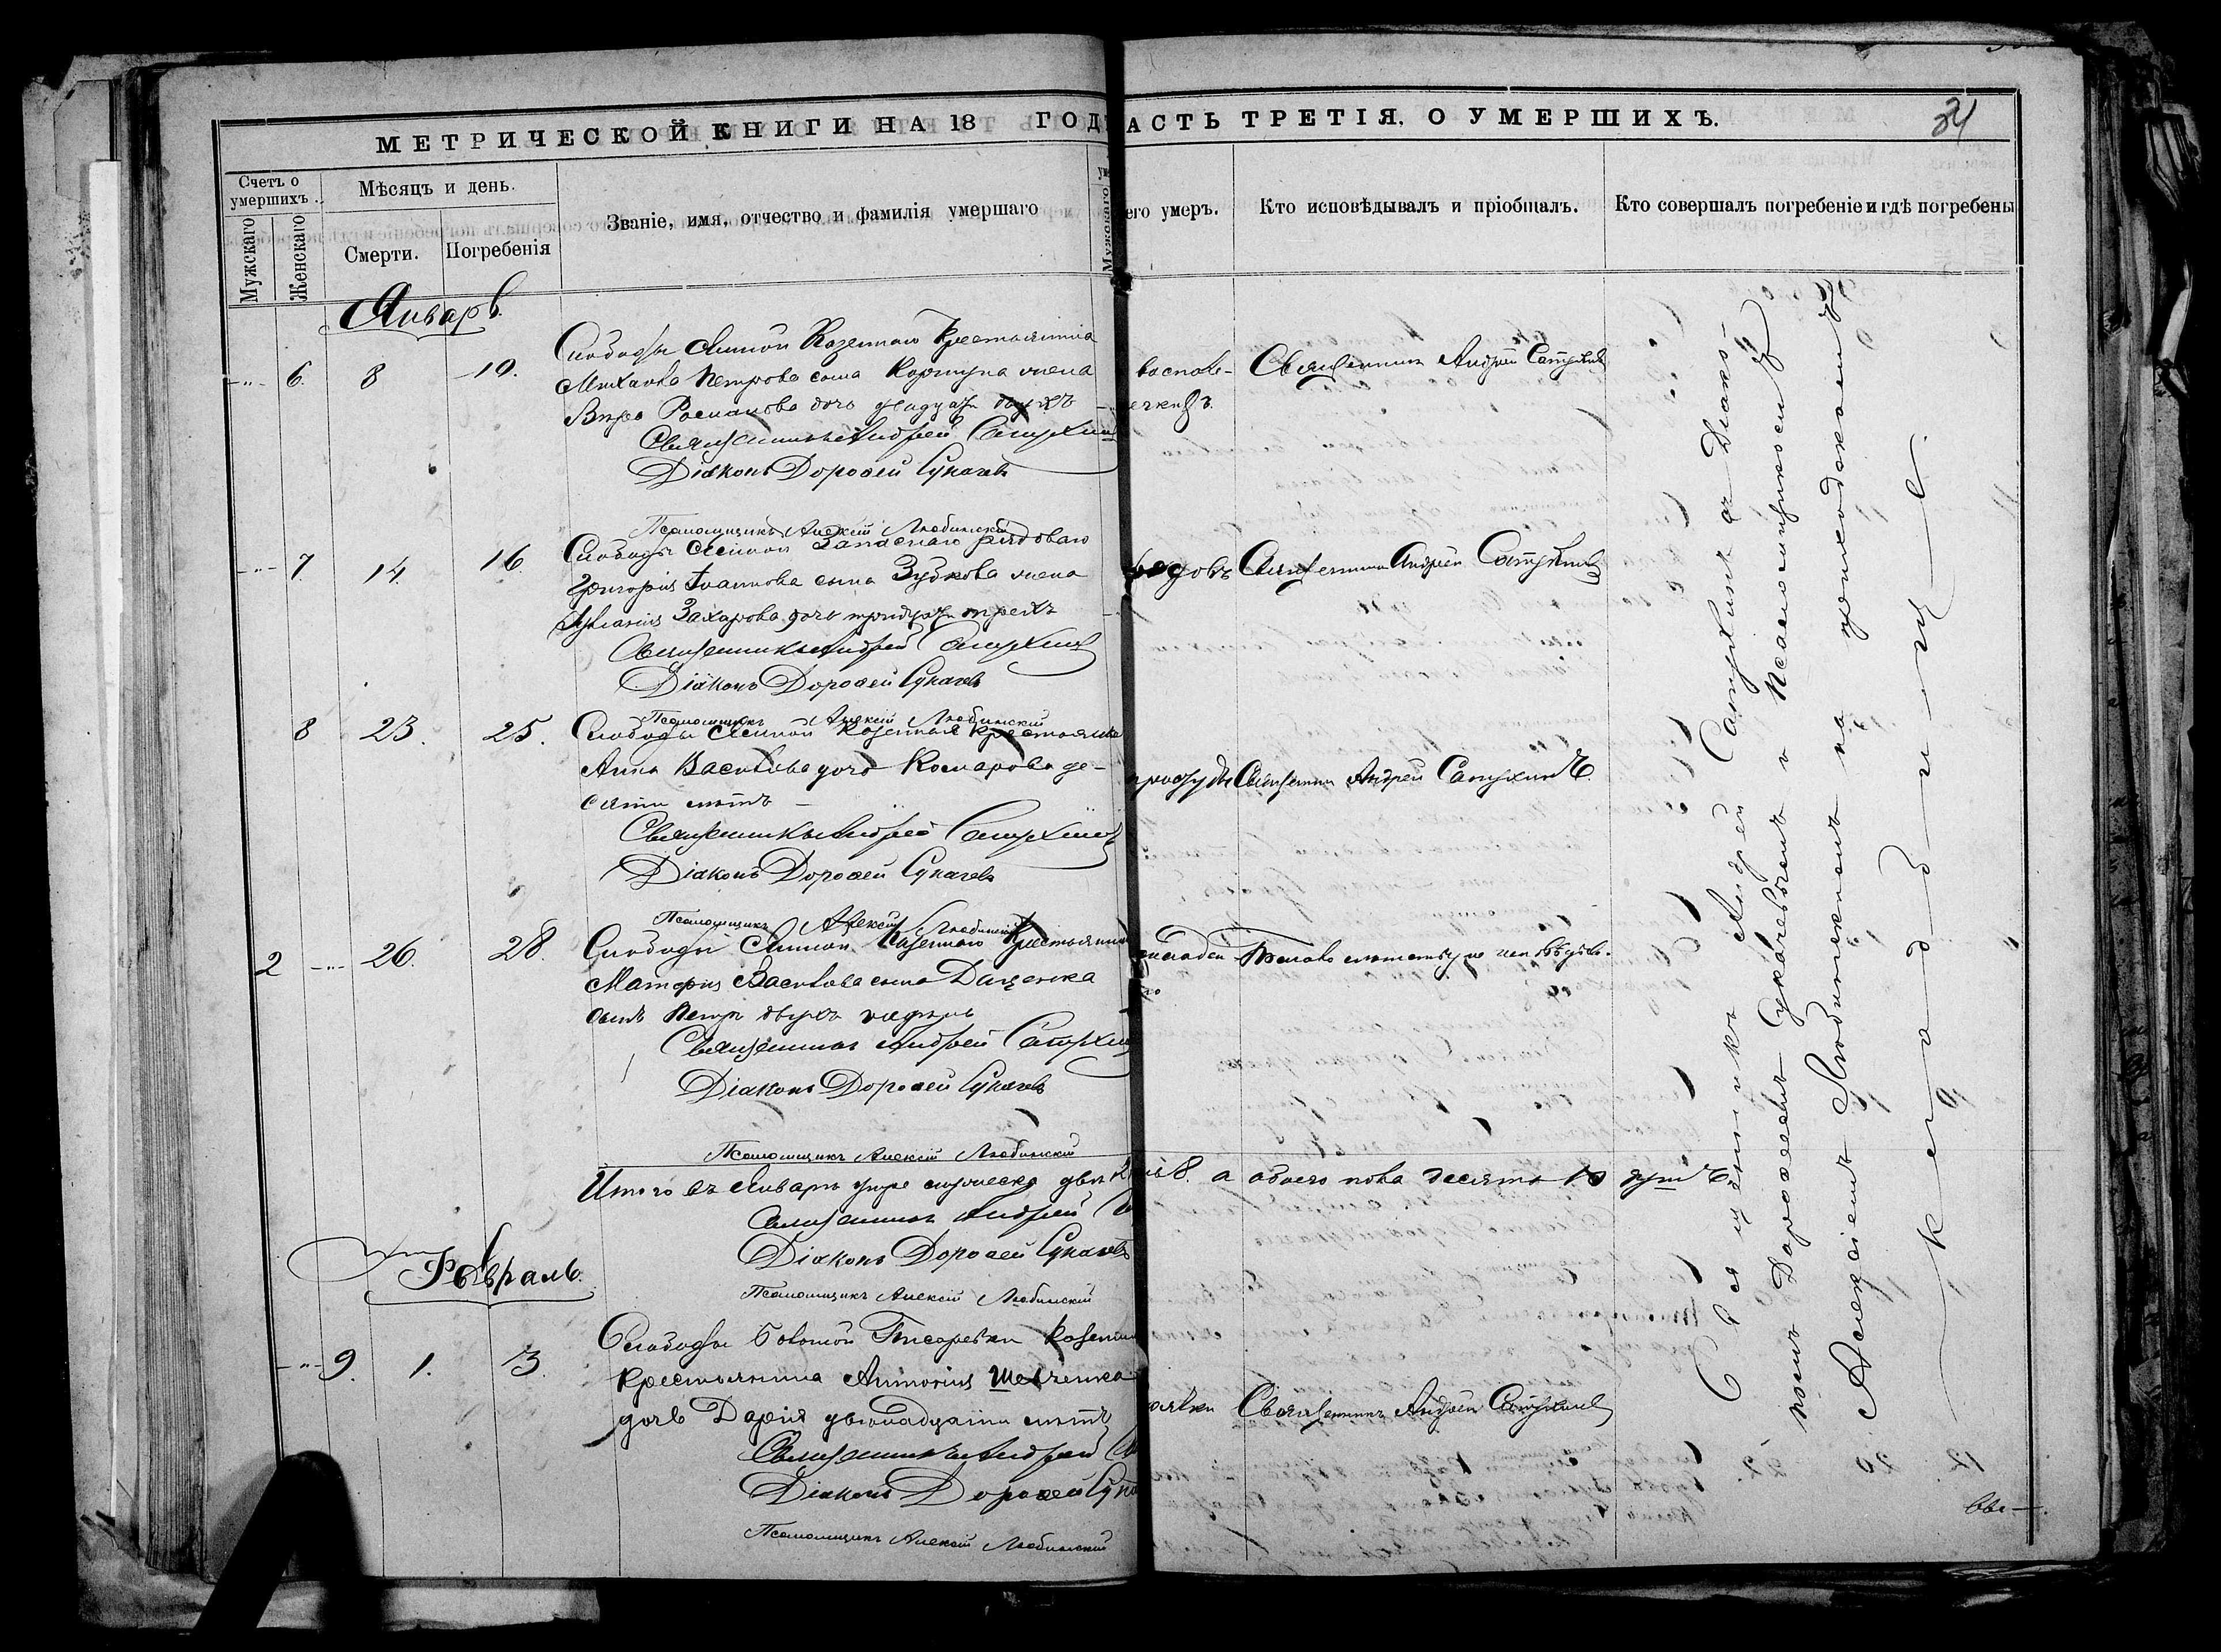 МЕТРИЧЕСКОЙ КНИГИ НА 18 ГОД
АСТЬ ТРЕТІЯ, О УМЕРШИХЪ.
34
Счетъ о умершихъ.
Мужскаго
Женскаго
Мѣсяцъ и день.
Смерти.
Погребенія
Званіе, имя, отчество и фамилія умершаго
Мужскаго
его умеръ.
Кто исповѣдывалъ и пріобщалъ.
Кто совершалъ погребеніе и гдѣ погребены
Январь.
6. 8 10.
Слободы Ясиной Казеннаго Крестьянина
Михаила Петрова сына жена
Вѣра Романова дочь двадцати двухъ
Священникъ Андрей Сатухинъ
Діаконъ Дороѳей Сукачевъ
Псаломщикъ Алексій Любинскій
воспале-
Священникъ Андрей Сатухинъ
7. 14. 16.
Слободы Ясиной Запаснаго рядоваго
Григорія Іоаннова сына Зубкова жена
Захарова дочь тридцати трехъ
Священникъ Андрей Сатухинъ
Діаконъ Дороѳей Сукачевъ
Псаломщикъ Алексій Любинскій
родовъ
Священникъ Андрей Сатухинъ
8 23. 25.
Слободы Ясиной Казенная крестьянка
Анна Василова дочь Комарова де-
сяти лѣтъ
Священникъ Андрей Сатухинъ
Діаконъ Дороѳей Сукачевъ
Псаломщикъ Алексій Любинскій
простуды
Священникъ Андрей Сатухинъ.
2 26. 28.
Слободы Ясиной Казеннаго Крестьянина
Матѳія Василова сына Даценка
сынъ Петръ двухъ недѣль
Священникъ Андрей Сатухинъ
Діаконъ Дороѳей Сукачевъ
Псаломщикъ Алексій Любинскій
По малолѣтству не исповѣдыв.
Итого въ Январѣ умре мужеска два 2
8. а обоего пола десять 10 душъ.
Священникъ Андрей
Діаконъ Дороѳей Сукачевъ
Псаломщикъ Алексій Любинскій
Февраль.
9. 1. 3.
Слободы Большой Писаревки Казенна
Крестьянина Антонія Шевченка
дочь Дарія двѣнадцати лѣтъ
Священникъ Андрей
Діаконъ Дороѳей
Псаломщикъ Алексій Любинскій
Священникъ Андрей Сатухинъ
Священникъ Андрей Сатухинъ съ Діако-
номъ Дороѳеемъ Сукачевымъ и Псаломщикомъ
Алексіемъ Любинскимъ на приходскомъ
кладбищѣ.